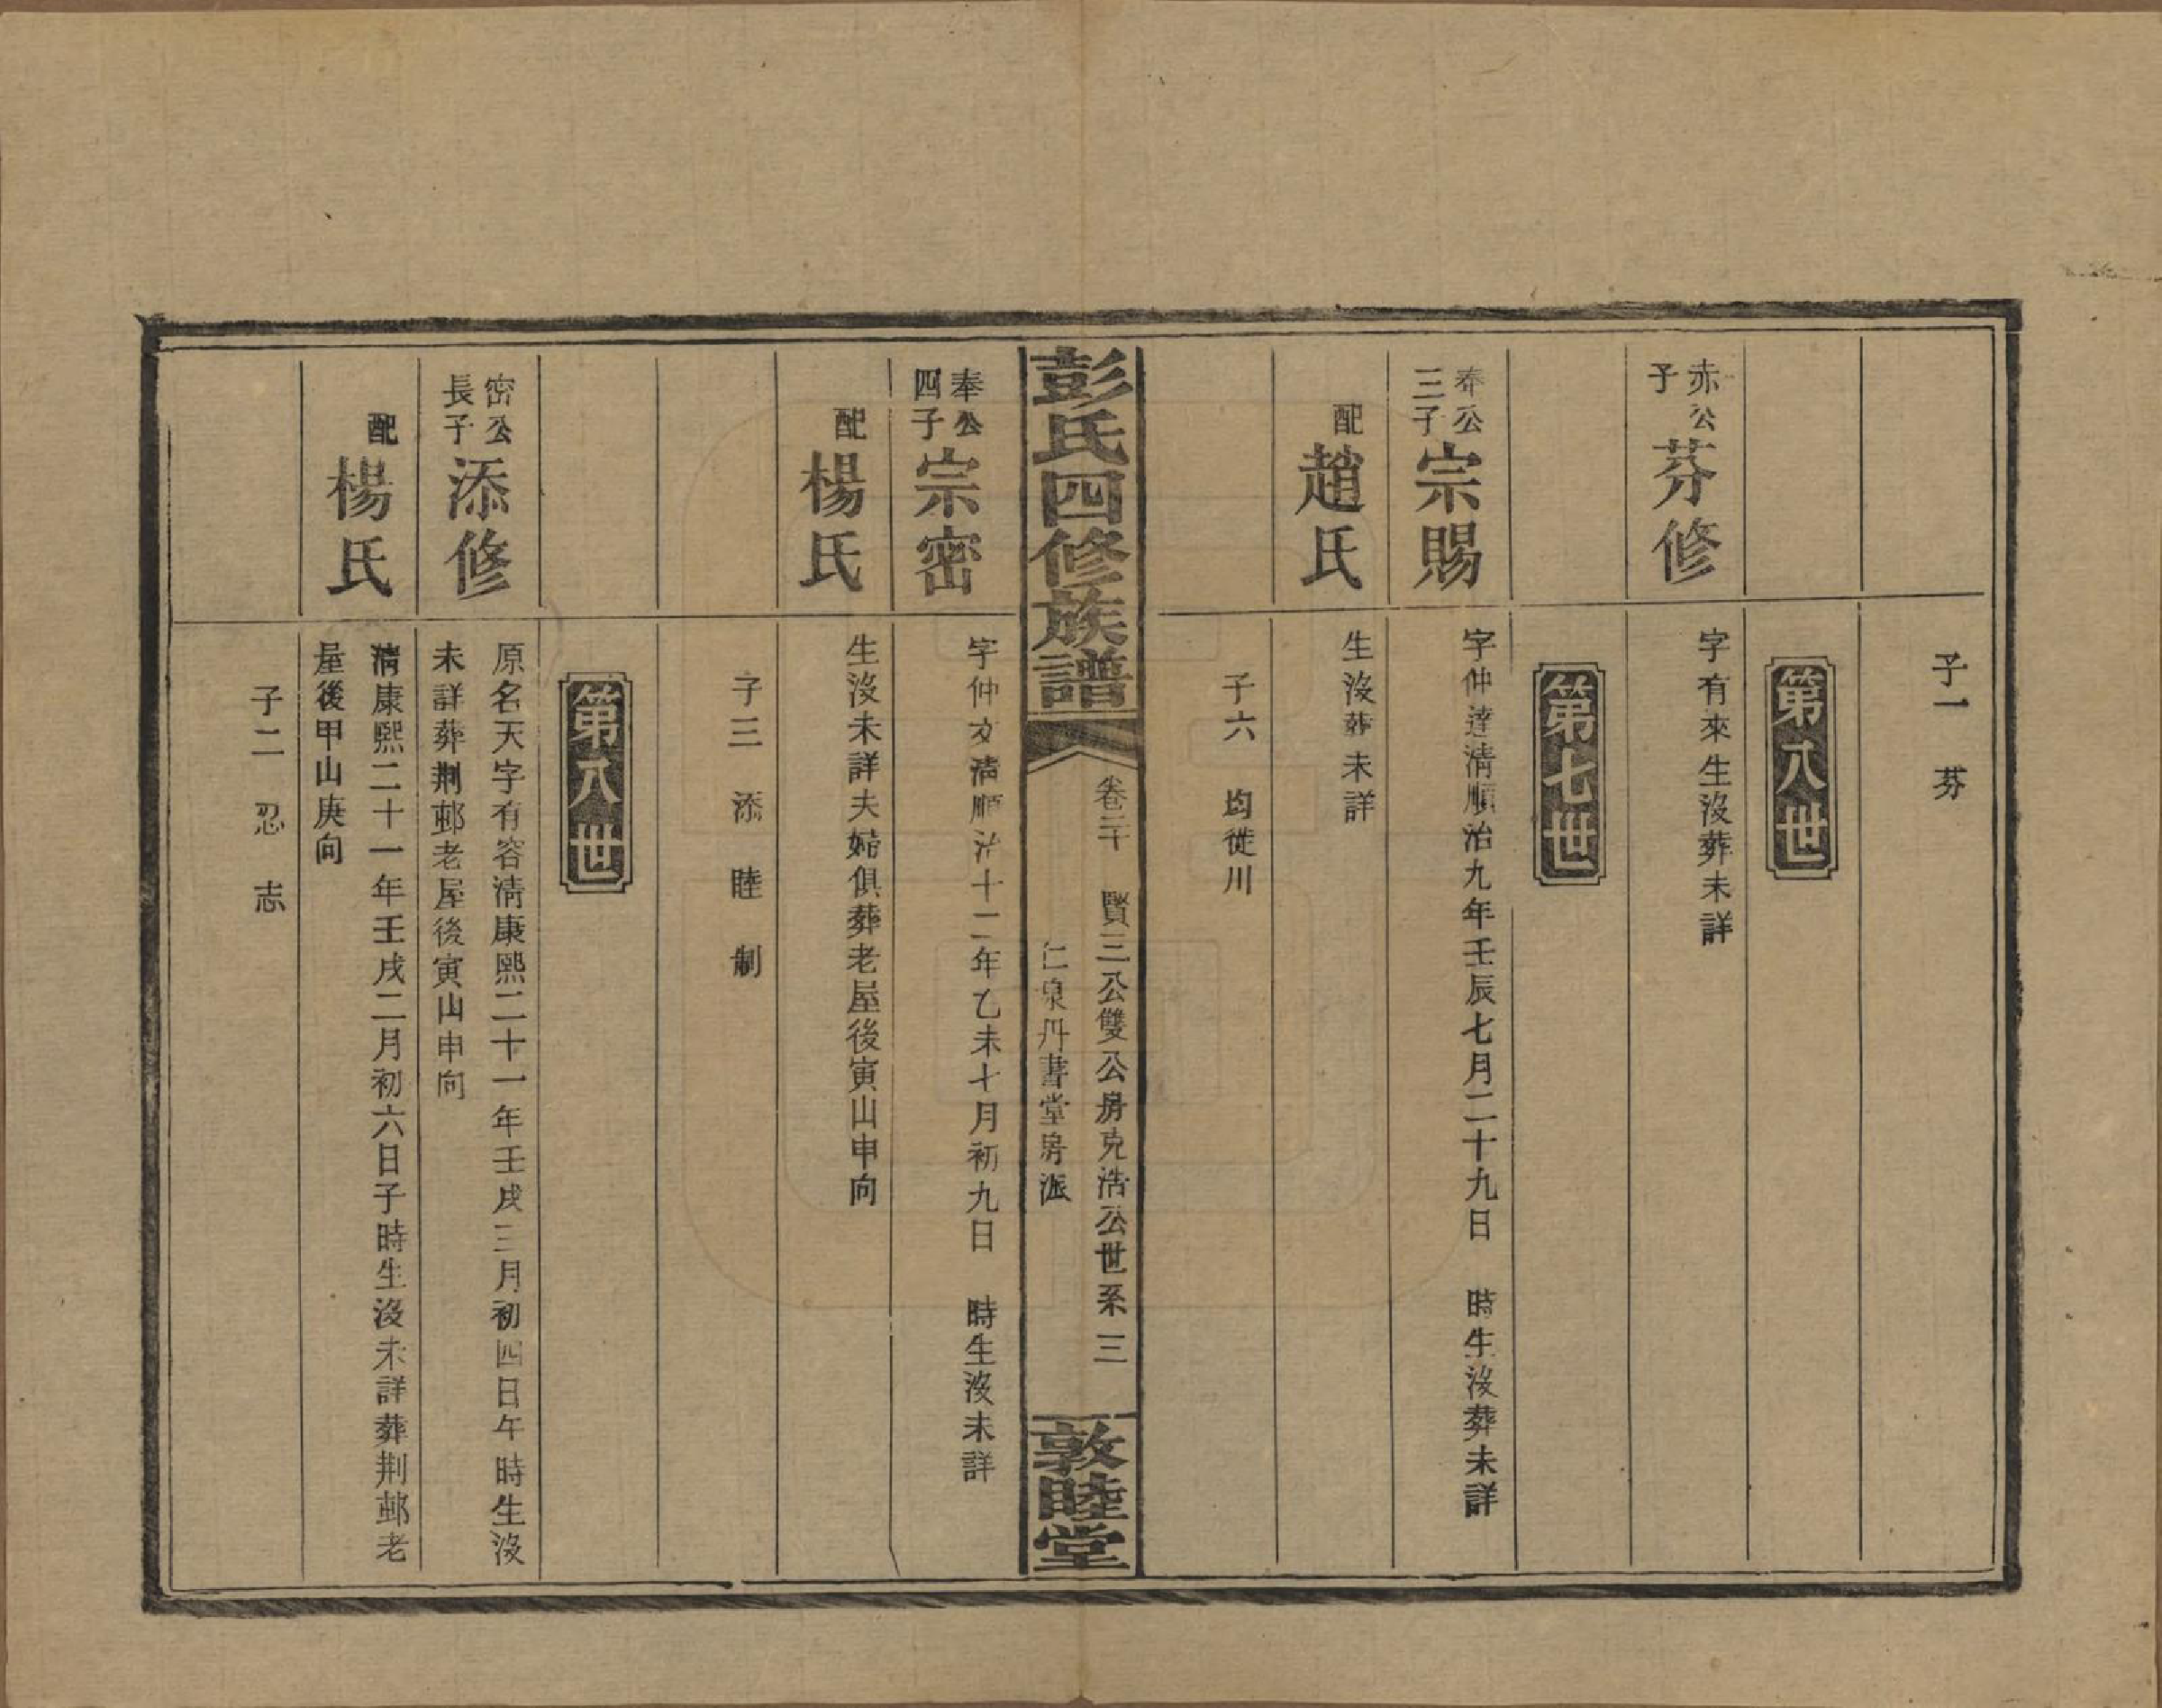 子一 芬
第八世
赤公
子
芬修
字有來生沒葬未詳
第七世
奉公
三子
宗賜
字仲達清順治九年壬辰七月二十九日 時生沒葬未詳
配
趙氏
生沒葬未詳
子六 均徙川
彭氏四修族譜
卷二十 賢三公雙公房克浩公世系 三
仁泉丹書堂房派
敦睦堂
奉公
四子
宗密
字仲文清順治十二年乙未十月初九日 時生沒未詳
配
楊氏
生沒未詳夫婦俱葬老屋後寅山申向
子三 添 睦 制
第八世
密公
長子
添修
原名天字有容清康熙二十一年壬戌三月初四日午時生沒
未詳葬荆邨老屋後寅山申向
配
楊氏
清康熙二十一年壬戌二月初六日子時生沒未詳葬荆邨老
屋後甲山庚向
子二 忍 志